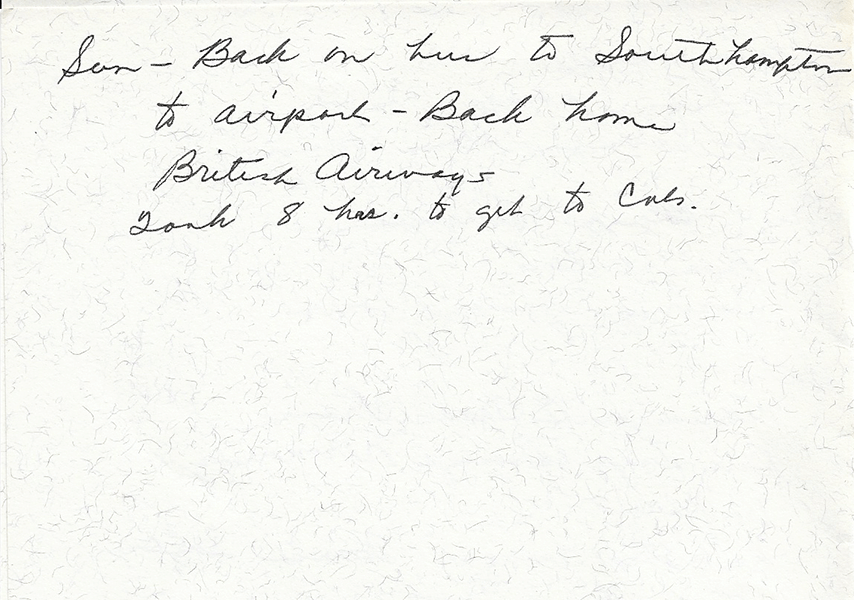 Sun - Back on bus to Southhampton
to airport - Back home
British Airways
Took 8 hrs. to get to Cols.